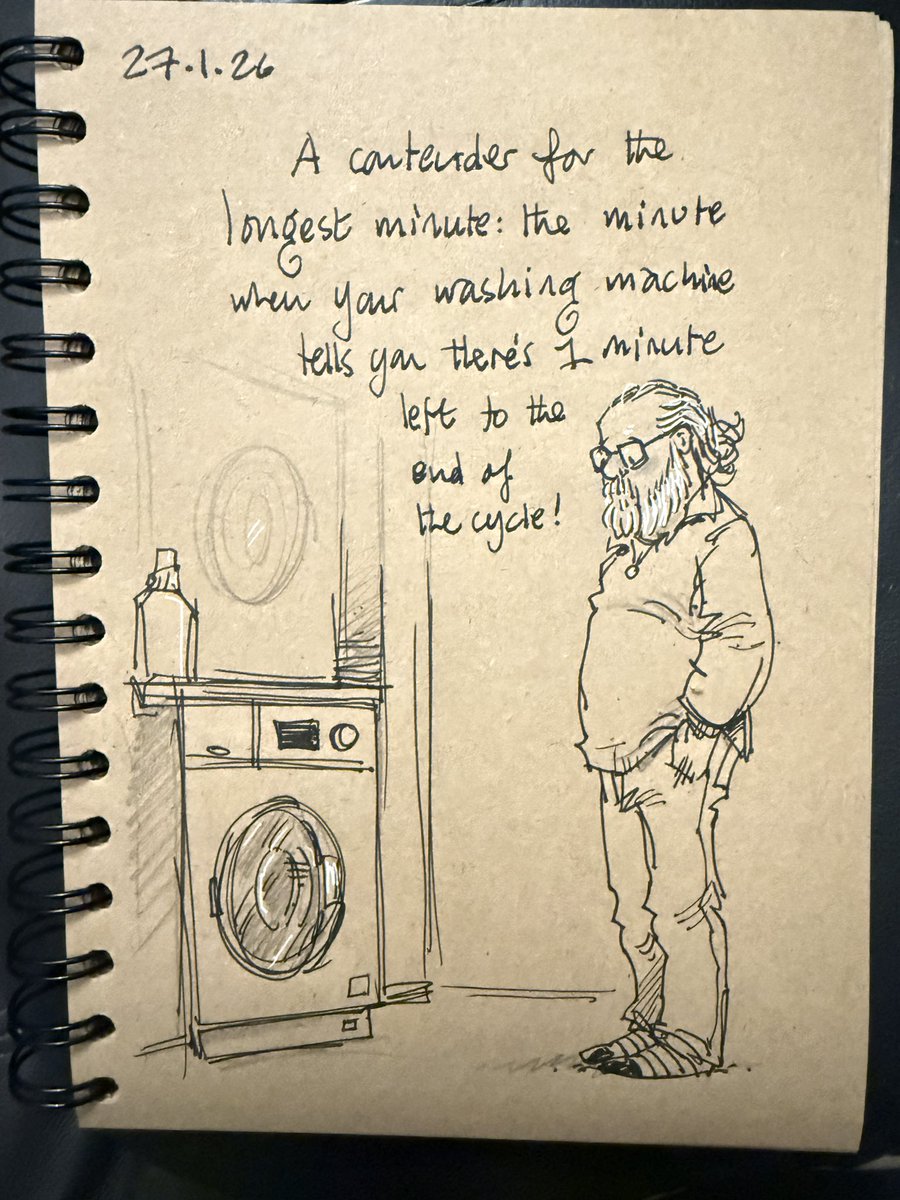 27.1.26
A contender for the
longest minute: the minute
when your washing machine
tells you there's 1 minute
left to the
end of
the cycle!